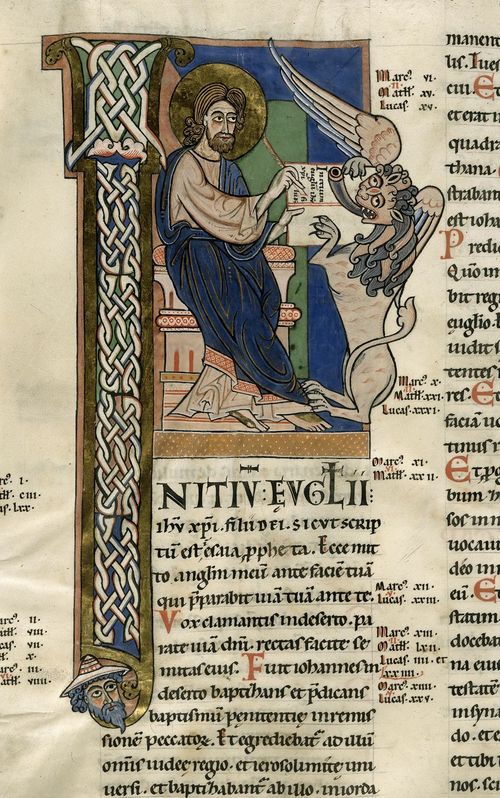 I
NITIV̄ : EVGLII :
ihū xp̄i. filii dei. sicut scrip
tum est esaia ꝓpheta. Ecce mit
to anglm̄ meū ante faciē tuā
qui p̄parabit uiā tuā ante te.
Vox clamantis in deserto. pa
rate uiā dn̄i. rectas facite se
mitas eius. Fuit iohannes in
deserto baptizans et p̄dicans
baptismū penitentie in remis
sionē peccatoꝝ. Et egrediebat̄ ad illū
om̄is iudee regio. et ierosolimite uni
uersi. et baptizabant̄ ab illo. in iorda
Marc⁹. vi.
Math̄. xv.
Lucas. xv.
Marc⁹. x.
Math̄. xxi.
Lucas. xxxi.
Marc⁹. xi.
Math̄. xx ii.
Marc⁹. xii.
Lucas. xxiii.
Marc⁹. xiii.
Math̄. xxxi.
Lucas. iiii. et
xx iiii.
Marc⁹. xiiii.
Lucas. xxv.
manent
lis. Iues
ciū. Et
et erat in
quadra
thana.
strabant
est ioha
Predic
Qūo in
bit regn
euglio.
uidit s
tentes
res. Et
faciā uo
tinuis r
Et ꝓgr
bum h
sos in n
uocaui
deo in
eū. Et
statim
docebat
na eui
testatē
in syna
do. et e
et tibi
nos. sci